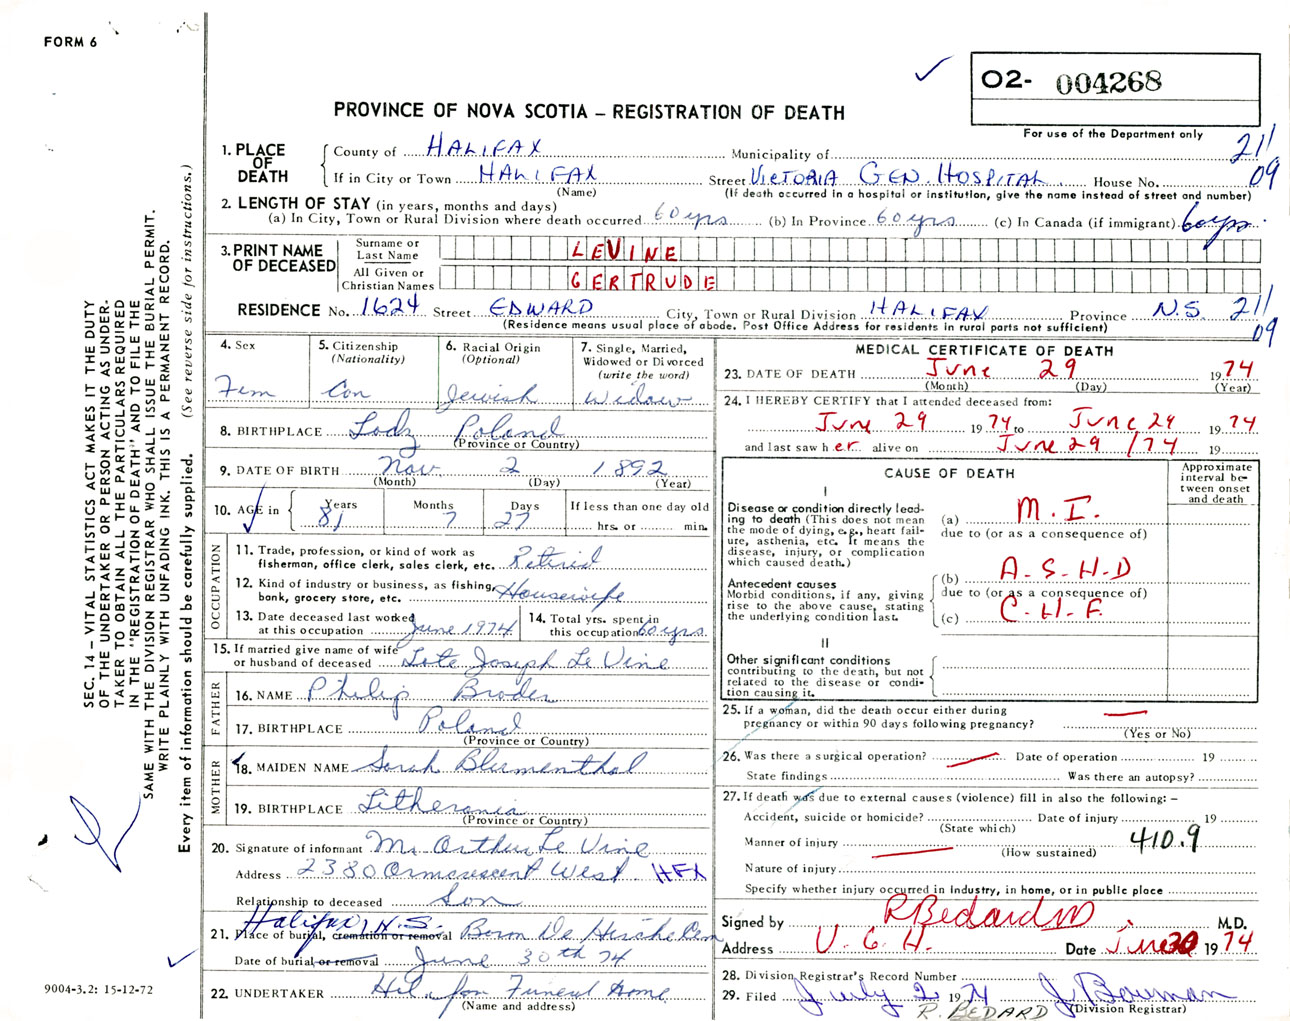 FORM 6
O2- 004268
PROVINCE OF NOVA SCOTIA – REGISTRATION OF DEATH
For use of the Department only
1. PLACE OF DEATH
County of HALIFAX Municipality of 21/
If in City or Town HALIFAX Street VICTORIA GEN. HOSPITAL. House No. 09
(Name) (If death occurred in a hospital or institution, give the name instead of street and number)
2. LENGTH OF STAY (in years, months and days)
(a) In City, Town or Rural Division where death occurred 60 yrs (b) In Province 60 yrs (c) In Canada (if immigrant) 60 yrs.
3. PRINT NAME OF DECEASED
Surname or Last Name LEVINE
All Given or Christian Names GERTRUDE
RESIDENCE No. 1624 Street EDWARD City, Town or Rural Division HALIFAX Province N.S. 21/
(Residence means usual place of abode. Post Office Address for residents in rural parts not sufficient) 09
4. Sex
Fem
5. Citizenship
(Nationality)
Can
6. Racial Origin
(Optional)
Jewish
7. Single, Married,
Widowed or Divorced
(write the word)
Widow
8. BIRTHPLACE Lodz Poland
(Province or Country)
9. DATE OF BIRTH Nov 2 1892
(Month) (Day) (Year)
10. AGE in Years Months Days If less than one day old
81 7 27 hrs. or min.
OCCUPATION
11. Trade, profession, or kind of work as
fisherman, office clerk, sales clerk, etc. Retired
12. Kind of industry or business, as fishing,
bank, grocery store, etc. Housewife
13. Date deceased last worked
at this occupation June 1974
14. Total yrs. spent in
this occupation 60 yrs.
15. If married give name of wife
or husband of deceased Late Joseph Le Vine
FATHER
16. NAME Philip Broder
17. BIRTHPLACE Poland
(Province or Country)
MOTHER
18. MAIDEN NAME Sarah Blumenthal
19. BIRTHPLACE Litherania
(Province or Country)
20. Signature of informant Mr Arthur Le Vine
Address 2380 Armcrescent West HFX
Relationship to deceased Son
Halifax, N.S.
21. Place of burial, cremation or removal Beron De Hirsch Cem
Date of burial, or removal June 30th 74
22. UNDERTAKER Funeral Home
(Name and address)
MEDICAL CERTIFICATE OF DEATH
23. DATE OF DEATH June 29 1974
(Month) (Day) (Year)
24. I HEREBY CERTIFY that I attended deceased from:
June 29 1974 to June 29 1974
and last saw her alive on June 29 /74 19
CAUSE OF DEATH
Approximate
interval be-
tween onset
and death
I
Disease or condition directly lead-
ing to death (This does not mean
the mode of dying, e.g., heart fail-
ure, asthenia, etc. It means the
disease, injury, or complication
which caused death.)
(a) M.I.
due to (or as a consequence of)
Antecedent causes
Morbid conditions, if any, giving
rise to the above cause, stating
the underlying condition last.
(b) A-S-H-D
due to (or as a consequence of)
(c) C-H-F
II
Other significant conditions
contributing to the death, but not
related to the disease or condi-
tion causing it.
25. If a woman, did the death occur either during
pregnancy or within 90 days following pregnancy?
(Yes or No)
26. Was there a surgical operation? Date of operation 19
State findings Was there an autopsy?
27. If death was due to external causes (violence) fill in also the following: –
Accident, suicide or homicide? Date of injury 19
(State which)
Manner of injury 410.9
(How sustained)
Nature of injury
Specify whether injury occurred in industry, in home, or in public place
Signed by R Bedard MD M.D.
Address V.G.H. Date June 30 1974
28. Division Registrar's Record Number
29. Filed July 2 1974 J Bowman
R. BEDARD (Division Registrar)
SEC. 14 – VITAL STATISTICS ACT MAKES IT THE DUTY
OF THE UNDERTAKER OR PERSON ACTING AS UNDER-
TAKER TO OBTAIN ALL THE PARTICULARS REQUIRED
IN THE "REGISTRATION OF DEATH" AND TO FILE THE
SAME WITH THE DIVISION REGISTRAR WHO SHALL ISSUE THE BURIAL PERMIT.
WRITE PLAINLY WITH UNFADING INK. THIS IS A PERMANENT RECORD.
Every item of information should be carefully supplied. (See reverse side for instructions.)
9004-3.2: 15-12-72